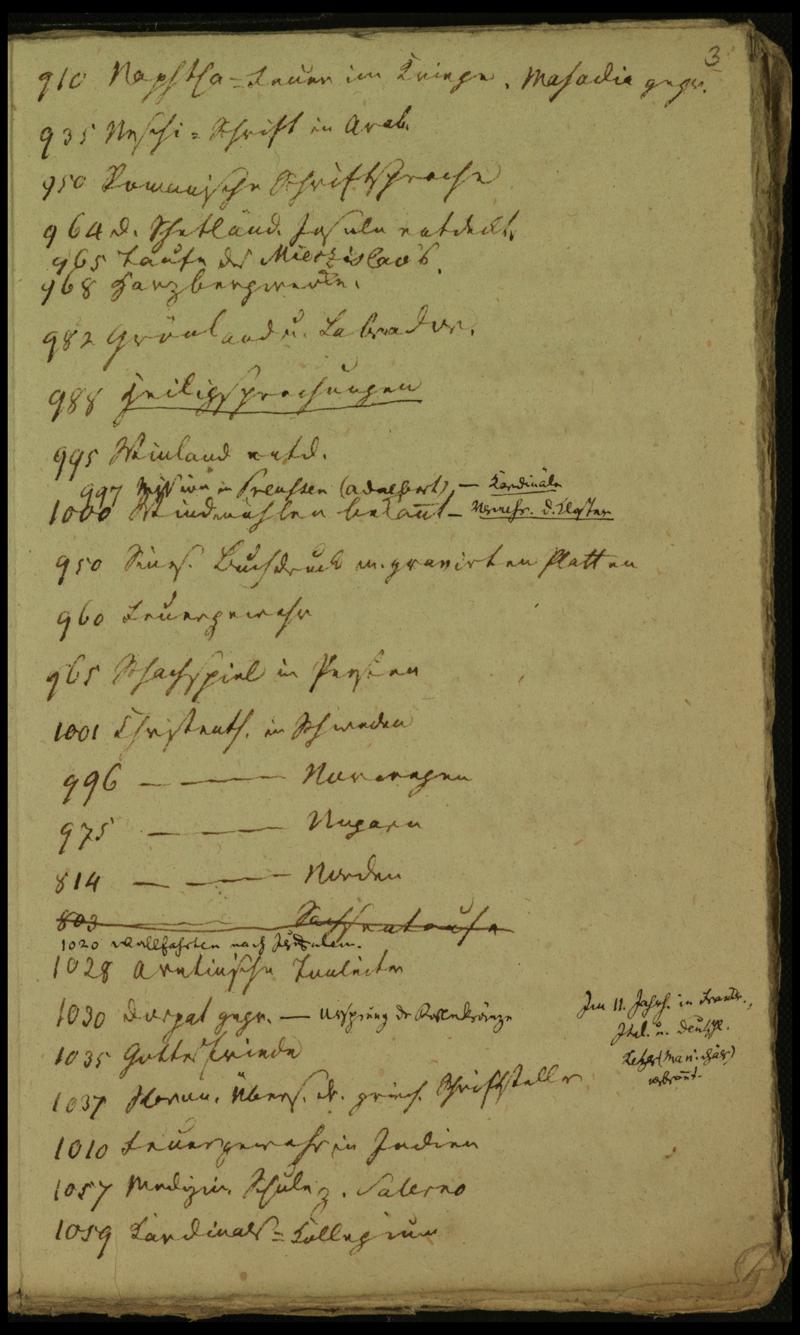 3
910 Naphtha=Feuer im Kriege. Masadia gegr.
935 Neschi=Schrift in Arab.
950 Romanische Schriftsprache
964 d. Schetländ. Inseln entdeckt.
965 Taufe des Mieczislaw's.
968 Harzbergwerke.
982 Grönland u. Labrador.
988 Heiligsprechungen
995 Winland entd.
997 Mission in Preussen (Adalbert) — Kardinäle
1000 Windmühlen bekañt — Vermehr. d. Klöster
950 Sines. Buchdruck m. gravirten Platten
960 Feuergewehr
965 Schachspiel in Persien
1001 Christenth. in Schweden
996 — — Norwegen
975 — — Ungarn
814 — — Norden
803 — — Sachsentaufe
1020 Wallfahrten nach Jerusalem.
1028 Aretinische Tonleiter
1030 Dorpat gegr. — Ursprung der Rosenkränze
Im 11. Jahrh. in Frankr.,
Ital. u. Deutschl.
Ketzer (Manichäer)
verbrañt.
1035 Gottesfriede
1037 Übers. d. griech. Schriftsteller
1010 Feuergewehr in Indien
1057 Medizin. Schule z. Salerno
1059 Kardinals=Kollegium